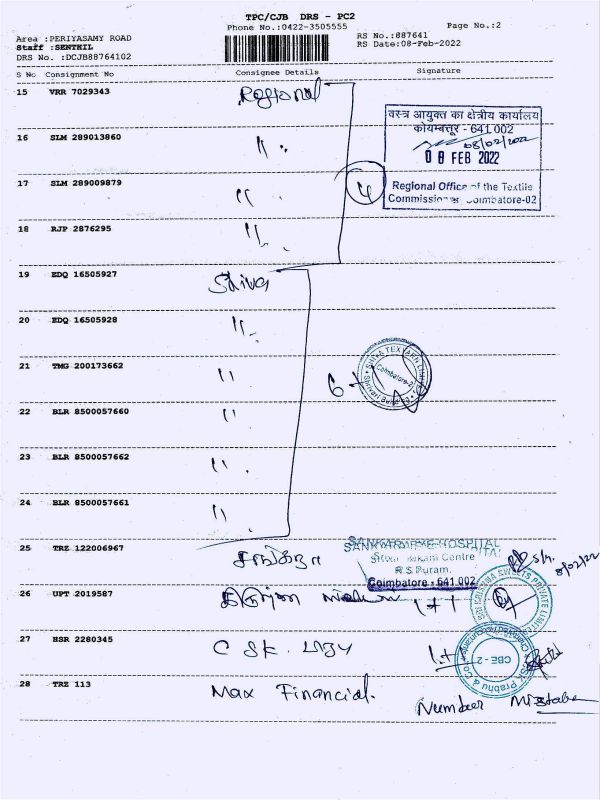 TPC/CJB DRS - PC2
Phone No.:0422-3505555
Page No.:2
Area :PERIYASAMY ROAD
Staff :SENTHIL
DRS No. :DCJB88764102
RS No.:887641
RS Date:08-Feb-2022
S No Consignment No Consignee Details Signature
15 VRR 7029343 Regional
वस्त्र आयुक्त का क्षेत्रीय कार्यालय
कोयम्बत्तूर - 641 002
08/02/2022
08 FEB 2022
Regional Office of the Textile
Commissioner Coimbatore-02
16 SLM 289013860 "
17 SLM 289009879 "
4
18 RJP 2876295 "
19 EDQ 16505927 Shiva
20 EDQ 16505928 "
21 TMG 200173662 "
6
SHIVA TEXYARN LIMITED
Coimbatore-2
22 BLR 8500057660 "
23 BLR 8500057662 "
24 BLR 8500057661 "
25 TRZ 122006967
SANKARA EYE HOSPITAL
Centre
R S Puram,
Coimbatore - 641 002
8/02/22
26 UPT 2019587
SRI KRISHNA SWEETS PRIVATE LIMITED
27 HSR 2280345 C SK.
SK Prabhu & Co
Chartered Accountants
CBE - 2
28 TRZ 113 Max Financial.
Number Mistake